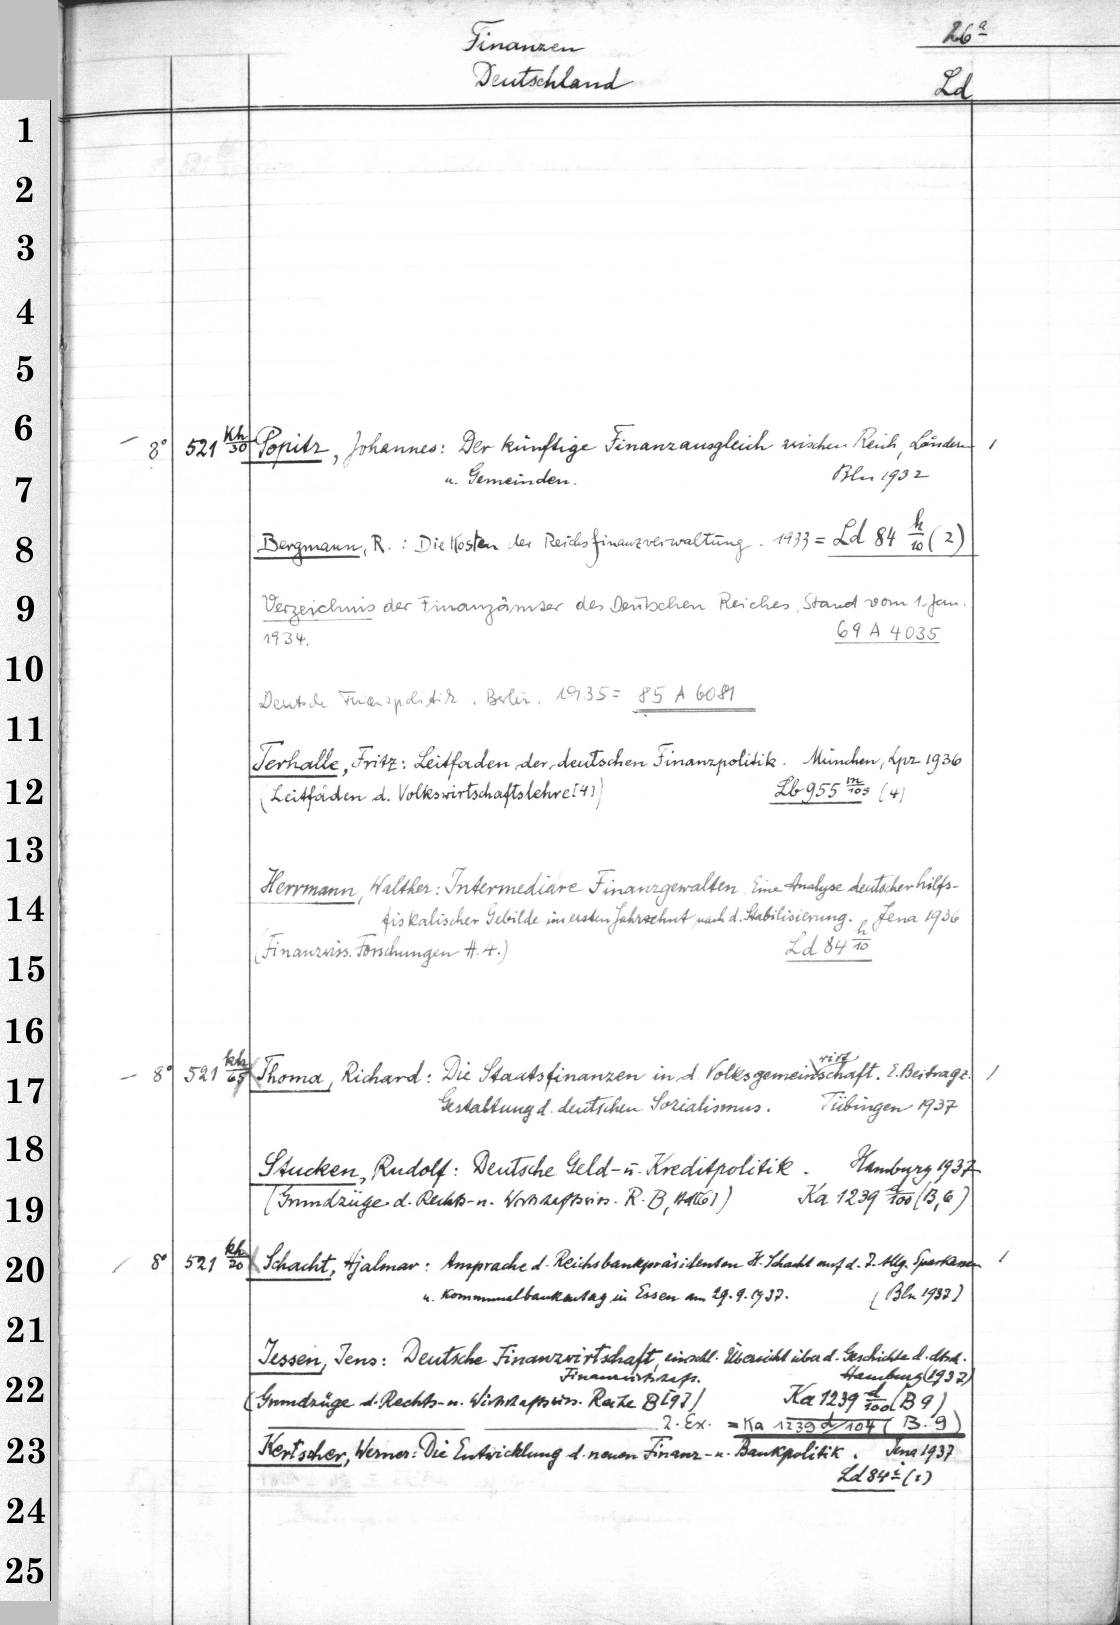 Finanzen 26ª
Deutschland Ld
1
2
3
4
5
6
— 8° 521 Kh/30 Popitz, Johannes: Der künftige Finanzausgleich zwischen Reich, Ländern 1
7
u. Gemeinden. Bln 1932
8
Bergmann, R.: Die Kosten der Reichsfinanzverwaltung. 1933 = Ld 84 h/10 (2)
9
Verzeichnis der Finanzämter des Deutschen Reiches. Stand vom 1. Jan.
1934. 69 A 4035
10
Deutsche Finanzpolitik. Berlin. 1935 = 85 A 6081
11
Terhalle, Fritz: Leitfaden der deutschen Finanzpolitik. München, Lpz 1936
12
(Leitfäden d. Volkswirtschaftslehre [4]) Lb 955 m/105 (4)
13
14
Herrmann, Walther: Intermediäre Finanzgewalten. Eine Analyse deutscher hilfs-
fiskalischer Gebilde im ersten Jahrzehnt nach d. Stabilisierung. Jena 1936
15
(Finanzwiss. Forschungen H. 4.) Ld 84 h/10
16
17
— 8° 521 kh/65 Thoma, Richard: Die Staatsfinanzen in d. Volksgemeinwirtschaft. E. Beitrag z. 1
Gestaltung d. deutschen Sozialismus. Tübingen 1937
18
Stucken, Rudolf: Deutsche Geld- u. Kreditpolitik. Hamburg 1937
19
(Grundzüge d. Rechts- u. Wirtschaftswiss. R. B, ) Ka 1239 /100 (B, 6)
20
8° 521 kh/20 Schacht, Hjalmar: Ansprache d. Reichsbankpräsidenten H. Schacht auf d. Allg. Sparkassen 1
u. Kommunalbankentag in Essen am 29.9.1937. (Bln 1937)
21
Jessen, Jens: Deutsche Finanzwirtschaft, einschl. Übersicht über d. Geschichte d. dtsch.
22
Finanzwirtschaft. Hamburg (1937)
(Grundzüge d. Rechts- u. Wirtschaftswiss. Reihe B [9]) Ka 1239 d/100 (B 9)
2. Ex. = Ka 1239 d/104 (B. 9)
23
Kertscher, Werner: Die Entwicklung d. neuen Finanz- u. Bankpolitik. Jena 1937
Ld 84 (1)
24
25